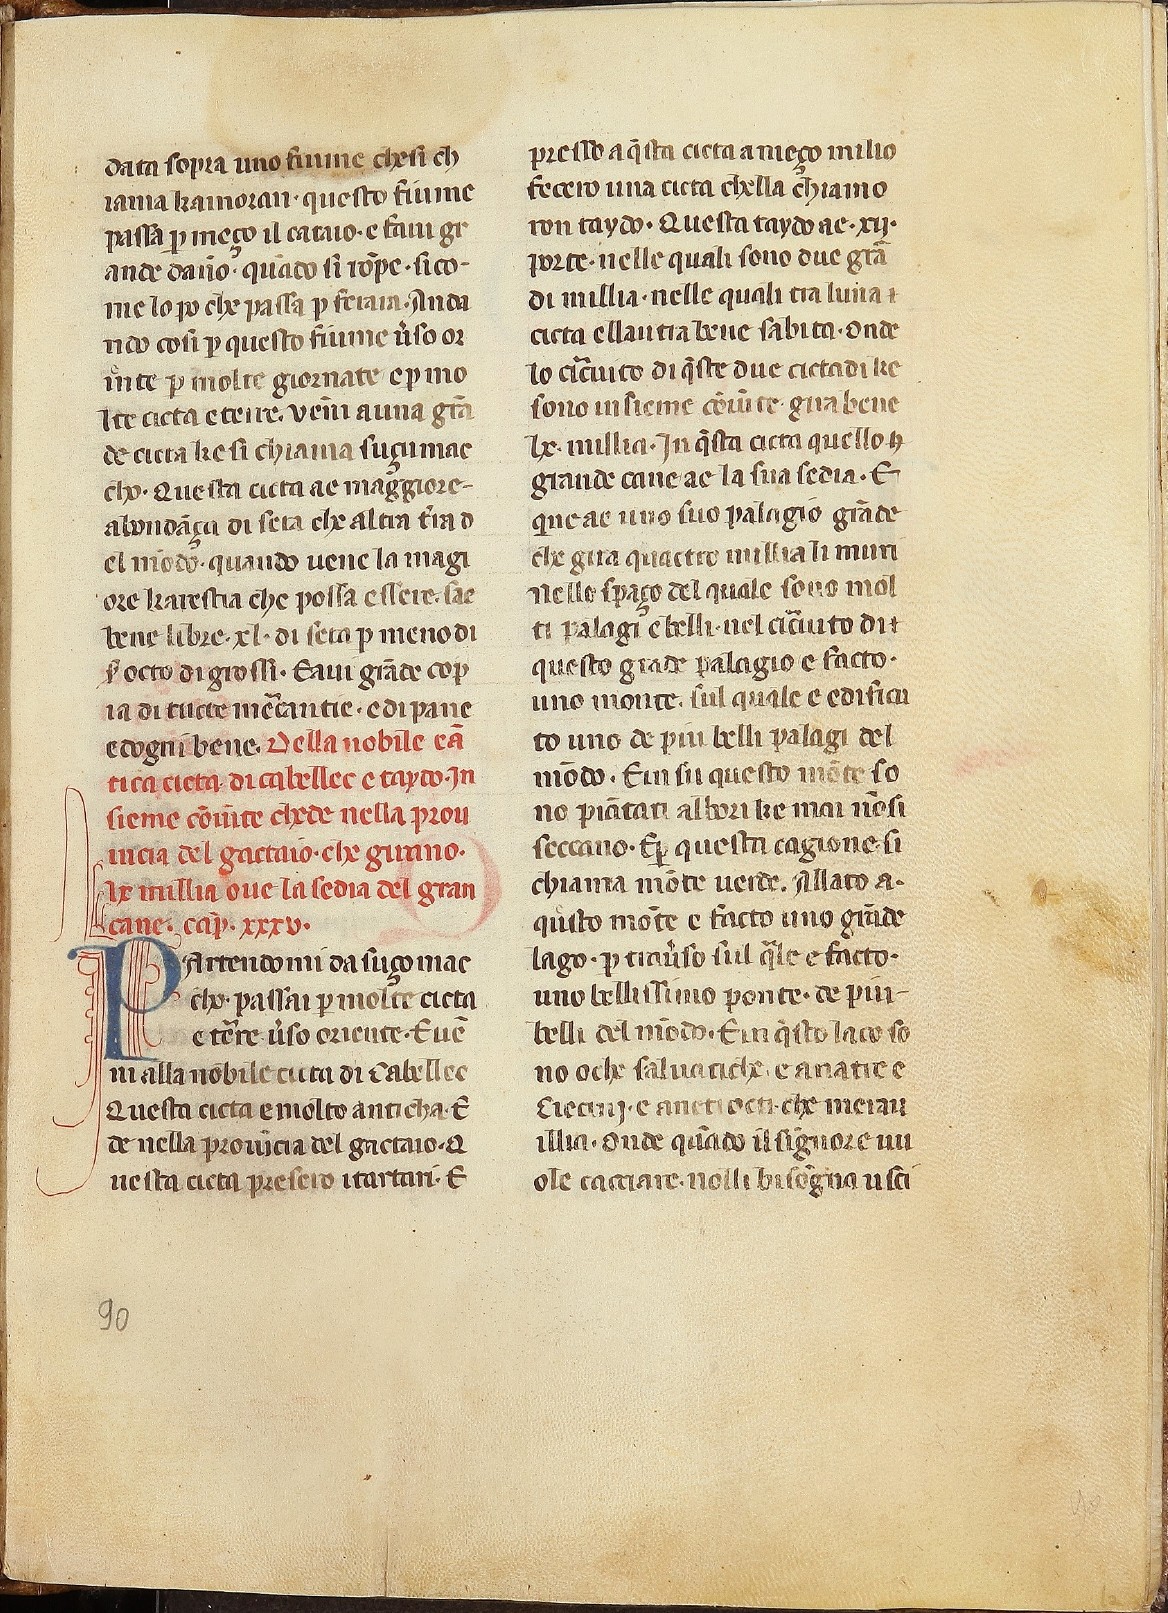 data sopra uno fiume chesi ch
iama kaimoran· questo fiume
passa p̱ meço il cataio· e favi gr
ande dan̄o· quādo si rōpe· sico-
me lo po che passa p̱ feraia. Anda
ndo cosi p̱ questo fiume ūso or
iēnte p̱ molte giornate e p̱ mo
lte cicta e terre. veni a una grā
de cicta ke si chiama suçumac
cho· Questa cicta ae maggiore-
abundāça di seta che altra t̄ra d
el mōdo· quando uene la magi
ore karestia che possa essere· sae
bene libre· xl· di seta p̱ meno di
octo di grossi· Eaui grāde cop
ia di tucte mēcantie· edi pane
edogni bene. Della nobile eā
tica cicta di cabellec e taydo· In
sieme cōiūte chede nella prou
incia del gactaio· che girano·
lx millia oue la sedia del gran
cane· cap̱· xxxv·
PArtendomi da suçomac
cho· passai p̱ molte cicta
e tēre ūso oriente· Euē
ni alla nobile cicta di Cabellec
Questa cicta e molto anticha· E
de nella prouīcia del gactaio· Q
uesta cicta presero i tartari· E
presso a q̄sta cicta a meço milio
fecero una cicta chella chiamo
ron taydo· Questa taydo ae· xij·
porte· nelle quali sono due grā
di millia· nelle quali tra luna ⁊
cicta ellautra bene sabita· Onde
lo cīcuito di q̄ste due cictadi ke
sono insieme cōiūte· gira bene
lx· millia· In q̄sta cicta quello
grande cane ae la sua sedia· E
que ae uno suo palagio grāde
che gira quactro millia li muri
nello spaço del quale sono mol
ti palagi e belli· nel cīcuito di ⁊
questo grāde palagio e facto·
uno monte. sul quale e edifica
to uno de piu belli palagi del
mōdo· Ein su questo mōte so
no piātati albori ke mai nōsi
seccano· Ep̱ questa cagione si
chiama mōte uerde. Allato a·
questo mōte e facto uno grāde
lago· p̱ trauūso sul q̄le e facto·
uno bellissimo ponte· de piu-
belli del mōdo· Ein q̄sto laco so
no oche saluatiche· e anatre e
Ciecinj· e anetrocti· che merau
illia· Onde quādo il signore uu
ole cacciare· nolli bisōgna usci
90